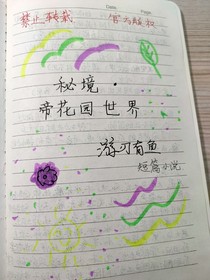 禁止转载
官方版权
Date. Page.
秘境·
帝花园世界
游刃有鱼
短篇小说